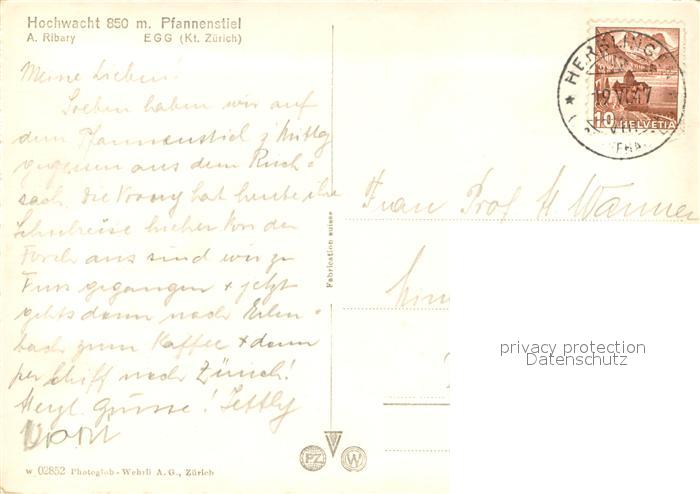 Hochwacht 850 m. Pfannenstiel
A. Ribary EGG (Kt. Zürich)
Meine Lieben!
Soeben haben wir auf
dem Pfannenstiel z' Mittg
gegessen aus dem Ruck=
sack. Die hat heute ihre
Schulreise hieher. Von der
Forch aus sind wir zu
Fuss gegangen + jetzt
gehts dann nach Erlen=
bach zum Kaffee + dann
per Schiff nach Zürich!
Herzl. Grüsse!
HERRLIBERG
19.VI.47
10 HELVETIA
Frau Prof. H. Wanner
Fabrication suisse
privacy protection
Datenschutz
PZ W
W 02852 Photoglob-Wehrli A.G., Zürich